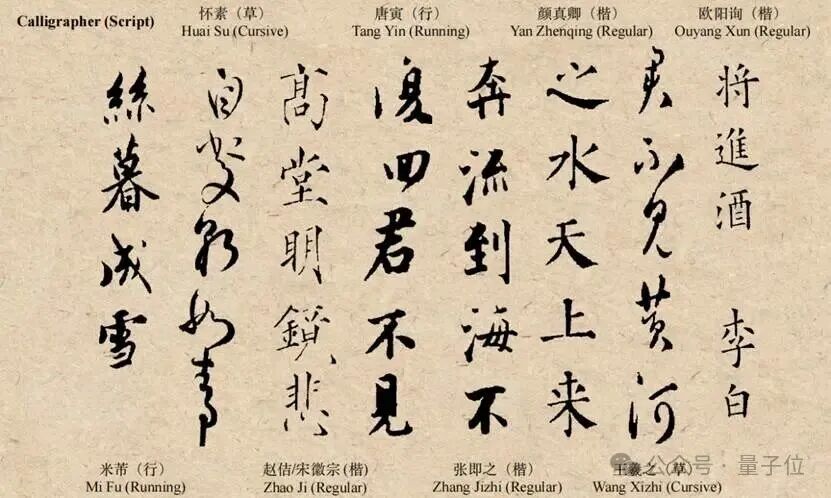 Calligrapher (Script)
怀素（草）
Huai Su (Cursive)
唐寅（行）
Tang Yin (Running)
颜真卿（楷）
Yan Zhenqing (Regular)
欧阳询（楷）
Ouyang Xun (Regular)
将進酒 李白
君不見黄河
之水天上来
奔流到海不
復回君不見
髙堂明鏡悲
白髮朝如青
絲暮成雪
米芾（行）
Mi Fu (Running)
赵佶/宋徽宗（楷）
Zhao Ji (Regular)
张即之（楷）
Zhang Jizhi (Regular)
王羲之（草）
Wang Xizhi (Cursive)
公众号·量子位